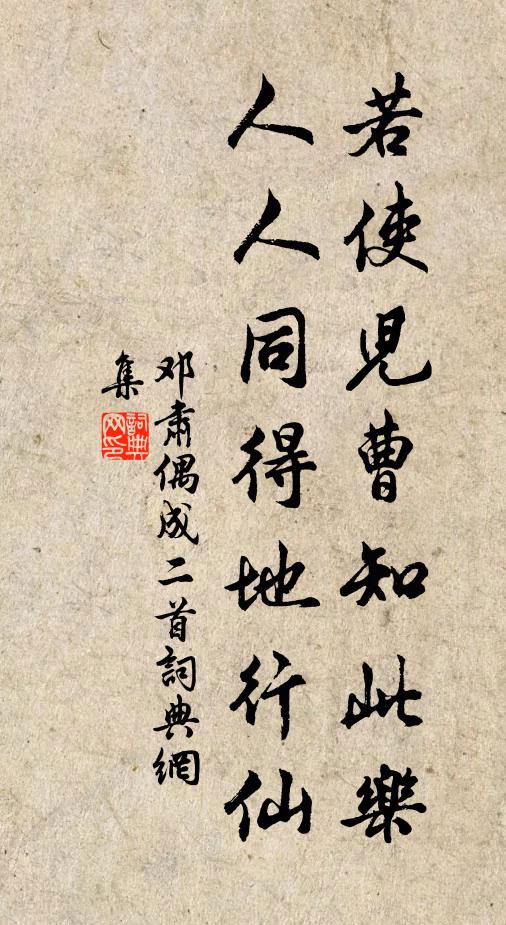 若使兒曹知此樂
人人同得地行仙
邓肅偶成二首詞典網
集
詞典
网印